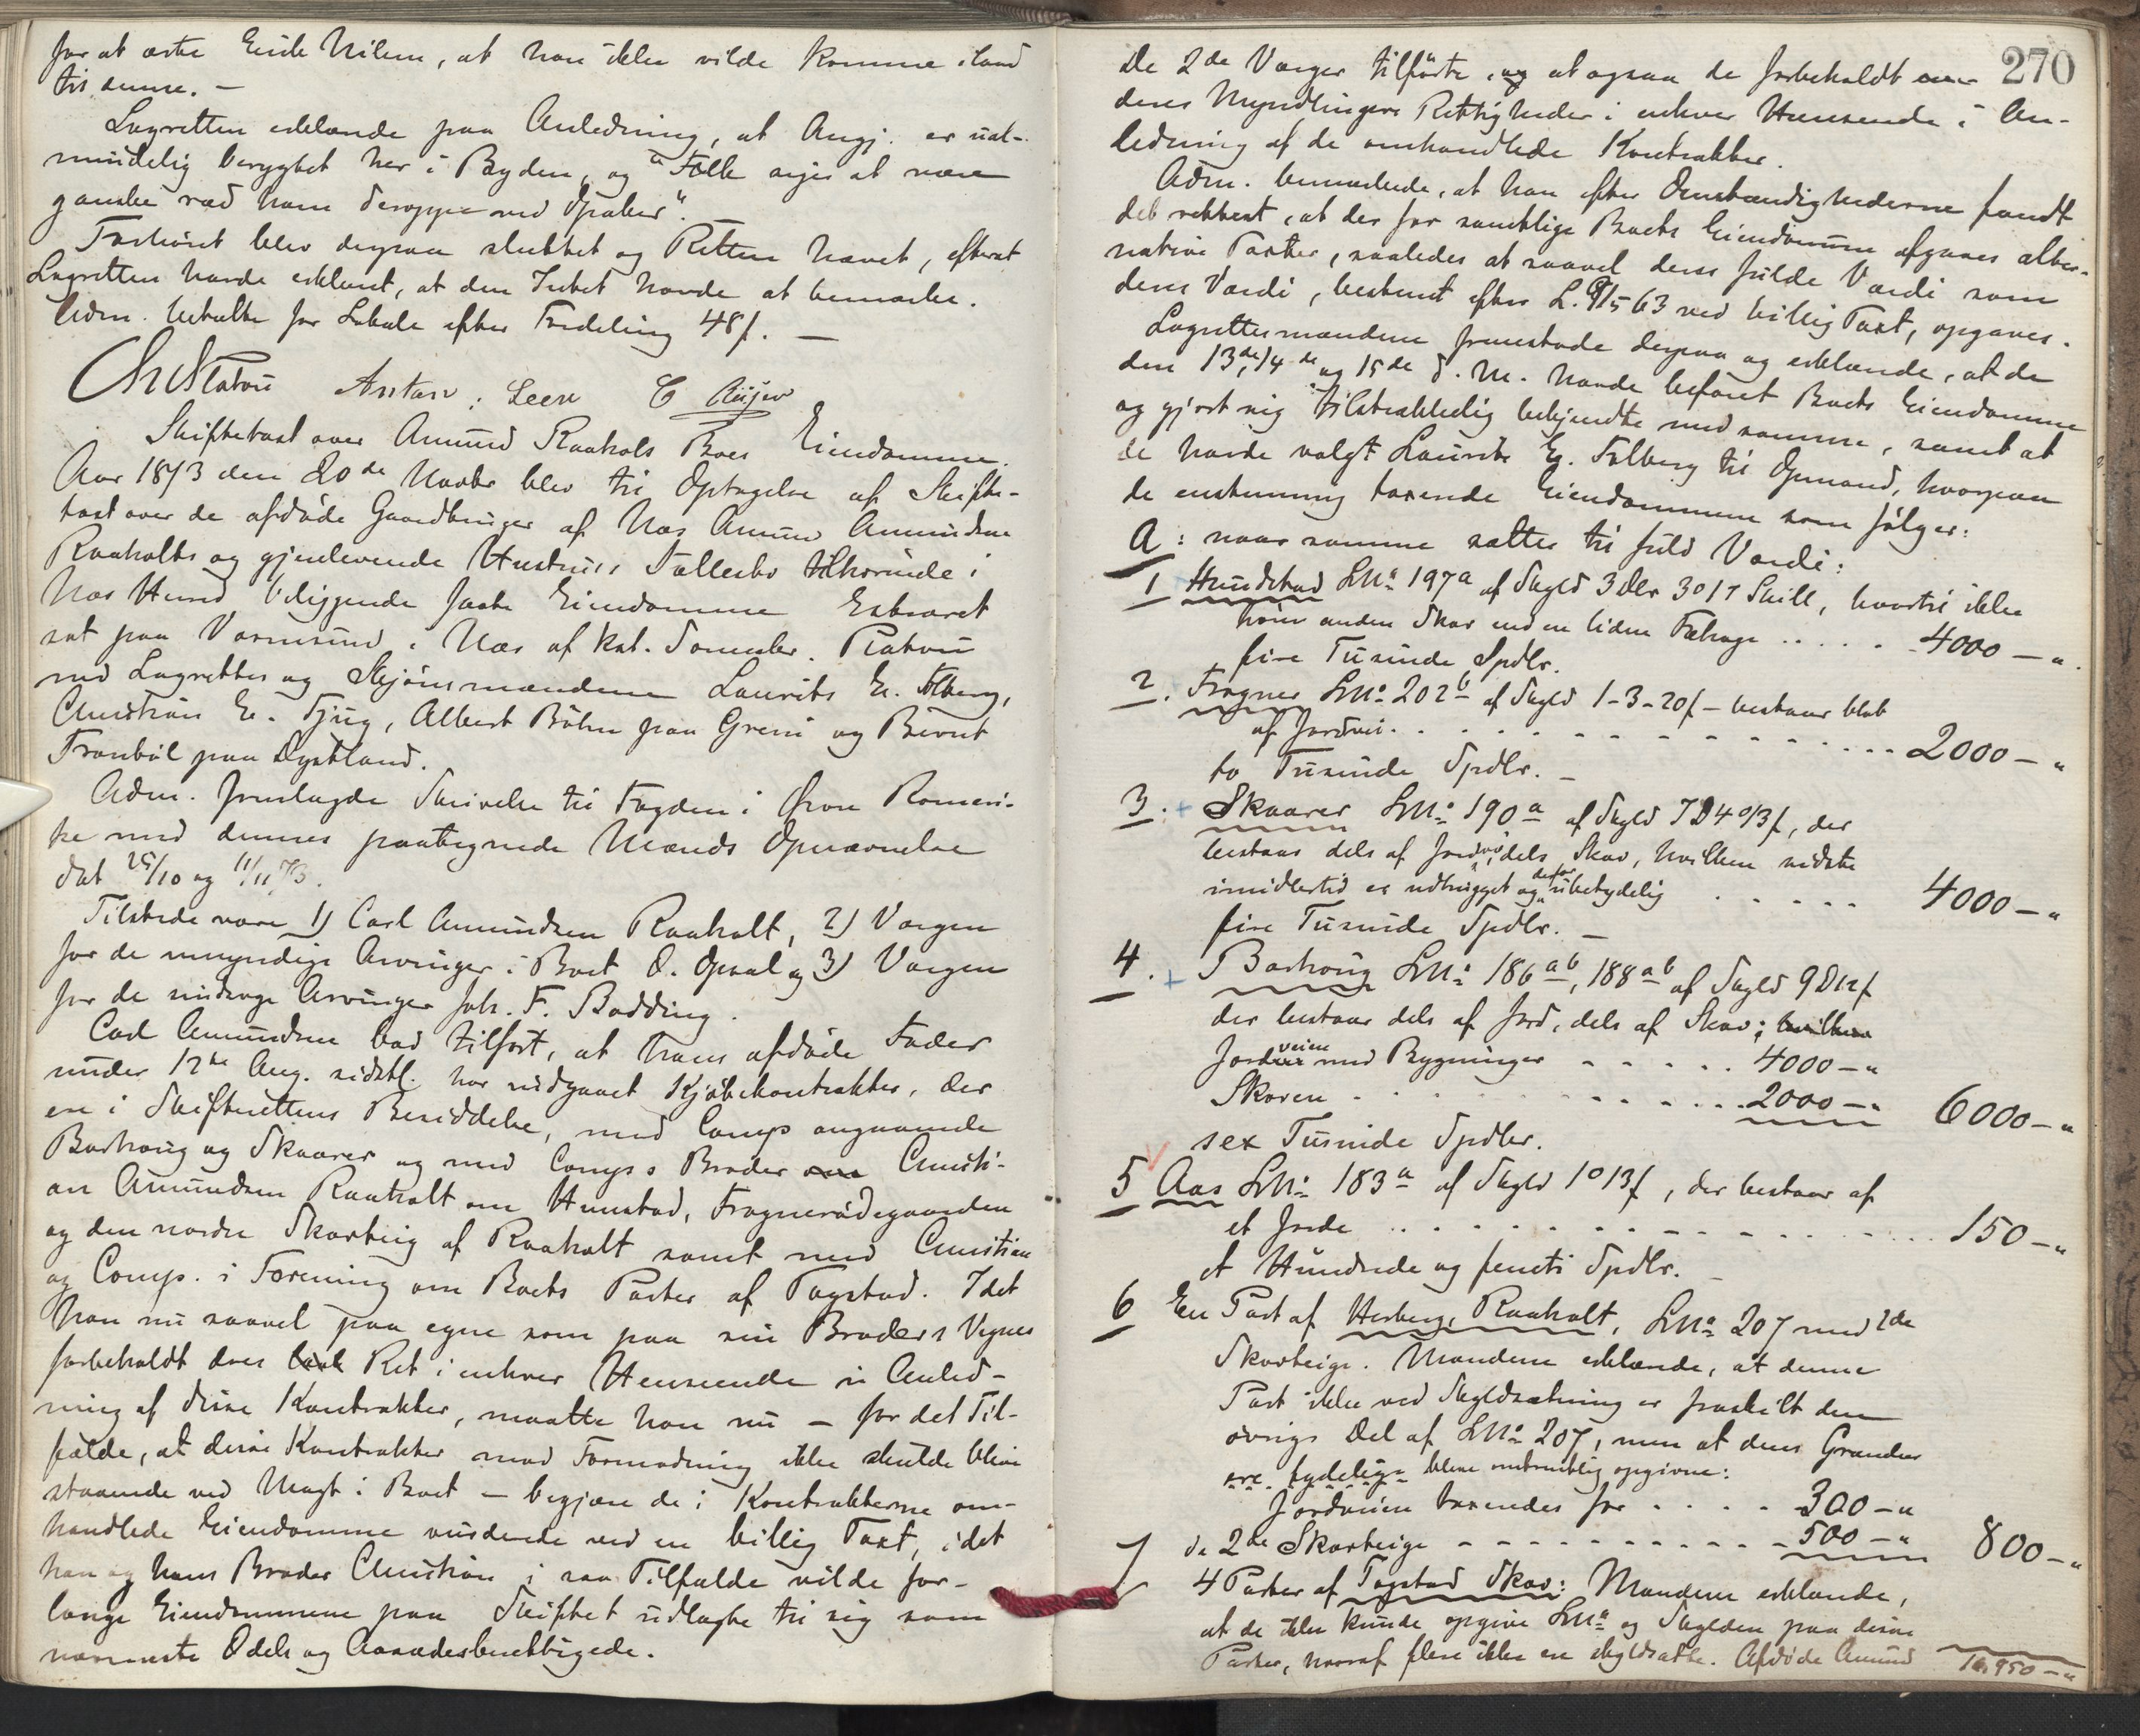 for at æske Eirik Nilsen, at han ikke vilde komme iland
til denne. —
Lagretten erklærede paa Anledning, at Angj. er ual-
mindelig berygtet her i Bygden, og "Folk siges at være
ganske ræd ham deroppe ved Opaker".
Forhøret blev derpaa sluttet og Retten hævet, efterat
Lagretten havde erklæret, at den Intet havde at bemærke.
Adm. betalte for Lokale efter Fordeling 48 f. —
Chr Platou Anton Leen C
Skiftetaxt over Amund Raaholts Boes Eiendomme.
Aar 1873 den 20de Novbr blev til Optagelse af Skifte-
taxt over de afdøde Gaardbruger af Næs Amund Amundsen
Raaholts og gjenlevende Hustrues Fællesbo tilhørende i
Næs Herred beliggende faste Eiendomme Extraret
sat paa Vormsund i Næs af kst. Sorenskr. Platou
med Lagrettes og Skjønsmændene Laurits Er. Folberg,
Christian Er. Fjug, Albert Bøhn paa Greni og Bernt
Tronbøl paa Dystland.
Adm. fremlagde Skrivelse til Fogden i Øvre Romeri-
ke med dennes paategnede Mænds Opnævnelse
dat 25/10 og 11/11 73.
Tilstede vare 1) Carl Amundsen Raaholt, 2) Værgen
for de umyndige Arvinger i Boet O. Opsal og 3) Værgen
for de mindreaarige Arvinger Joh. F. Bodding.
Carl Amundsen bad tilført, at hans afdøde Fader
under 12te Aug. sidstl. har indgaaet Kjøbekontrakter, der
ere i Skifterettens Besiddelse, med Comp. angaaende
Borhaug og Skaarer og med Comps Broder Christi-
an Amundsen Raaholt om Hunstad, Frognerødegaarden
og den nordre Skovteig af Raaholt samt med Christian
og Comp. i Forening om Boets Parter af Togstad. Idet
han nu saavel paa egne som paa sin Broders Vegne
forbeholdt deres Ret i enhver Henseende i Anled-
ning af disse Kontrakter, maatte han nu — for det Til-
fælde, at disse Kontrakter mod Formodning ikke skulde blive
staaende ved Magt i Boet — begjære de i Kontrakterne om-
handlede Eiendomme vurderede ved en billig Taxt, idet
han og hans Broder Christian i saa Tilfælde vilde for-
lange Eiendommene paa Skiftet udlagte til sig som
nærmeste Odels og Aasædesberettigede.
270
De 2de Værger tilførte, og at ogsaa de forbeholdt
deres Myndlingers Rettigheder i enhver Henseende i An-
ledning af de omhandlede Kontrakter.
Adm. bemærkede, at han efter Omstændighederne fandt
det rettest, at der for samtlige Boets Eiendomme afgaves alter-
native Taxter, saaledes at saavel deres fulde Værdi som
deres Værdi, bestemt efter L. 9/5 63 ved billig Taxt, opgaves.
Lagrettesmændene fremstode derpaa og erklærede, at de
den 13de, 14de og 15de d. M. havde befaret Boets Eiendomme
og gjort sig tilstrækkelig bekjendte med samme, samt at
de havde valgt Laurits Er. Folberg til Opmand, hvorpaa
de enstemmig taxerede Eiendommene som følger:
A: naar samme sættes til fuld Værdi:
1 Hundstad LNo 197a af Skyld 3 Dlr 3 o 17 Skill, hvortil ikke
hører anden Skov end en liden Fæhage ..... 4000 — "
fire Tusinde Spdlr.
2. Frogner LNo 202b af Skyld 1-3-20 f — bestaar blot
af Jordvei. ........ 2000 — "
to Tusinde Spdlr. —
3. + Skaarer LNo 190a af Skyld 7 D 4 o 13 f, der
bestaar dels af Jordvei, dels Skov, hvilken sidste
imidlertid er udhugget og derfor ubetydelig ..... 4000 — "
fire Tusinde Spdlr. —
4. + Borhaug LNo 186ab, 188ab af Skyld 9 D 12 f
der bestaar dels af Jord, dels af Skov; hvilken
Jordveien med Bygninger ..... 4000 — "
Skoven ........ 2000 — " 6000 — "
sex Tusinde Spdlr.
5 Aas LNo 183a af Skyld 1 o 13 f, der bestaar af
et Jorde ........ 150 — "
et Hundrede og femti Spdlr. —
6 En Part af Herberg Raaholt, LNo 207 med 2de
Skovteige. Mændene erklærede, at denne
Part ikke ved Skyldsætning er fraskilt den
øvrige Del af LNo 207, men at dens Grændser
ere tydelige blive omtrentlig opgivne:
Jordveien taxeredes for .... 300 — "
de 2de Skovteige ........ 500 — " 800 — "
7 4 Parter af Togstad Skov: Mændene erklærede,
at de ikke kunde opgive LNo og Skylden paa disse
Parter, hvoraf flere ikke ere skyldsatte. Afdøde Amund
16,950 — "